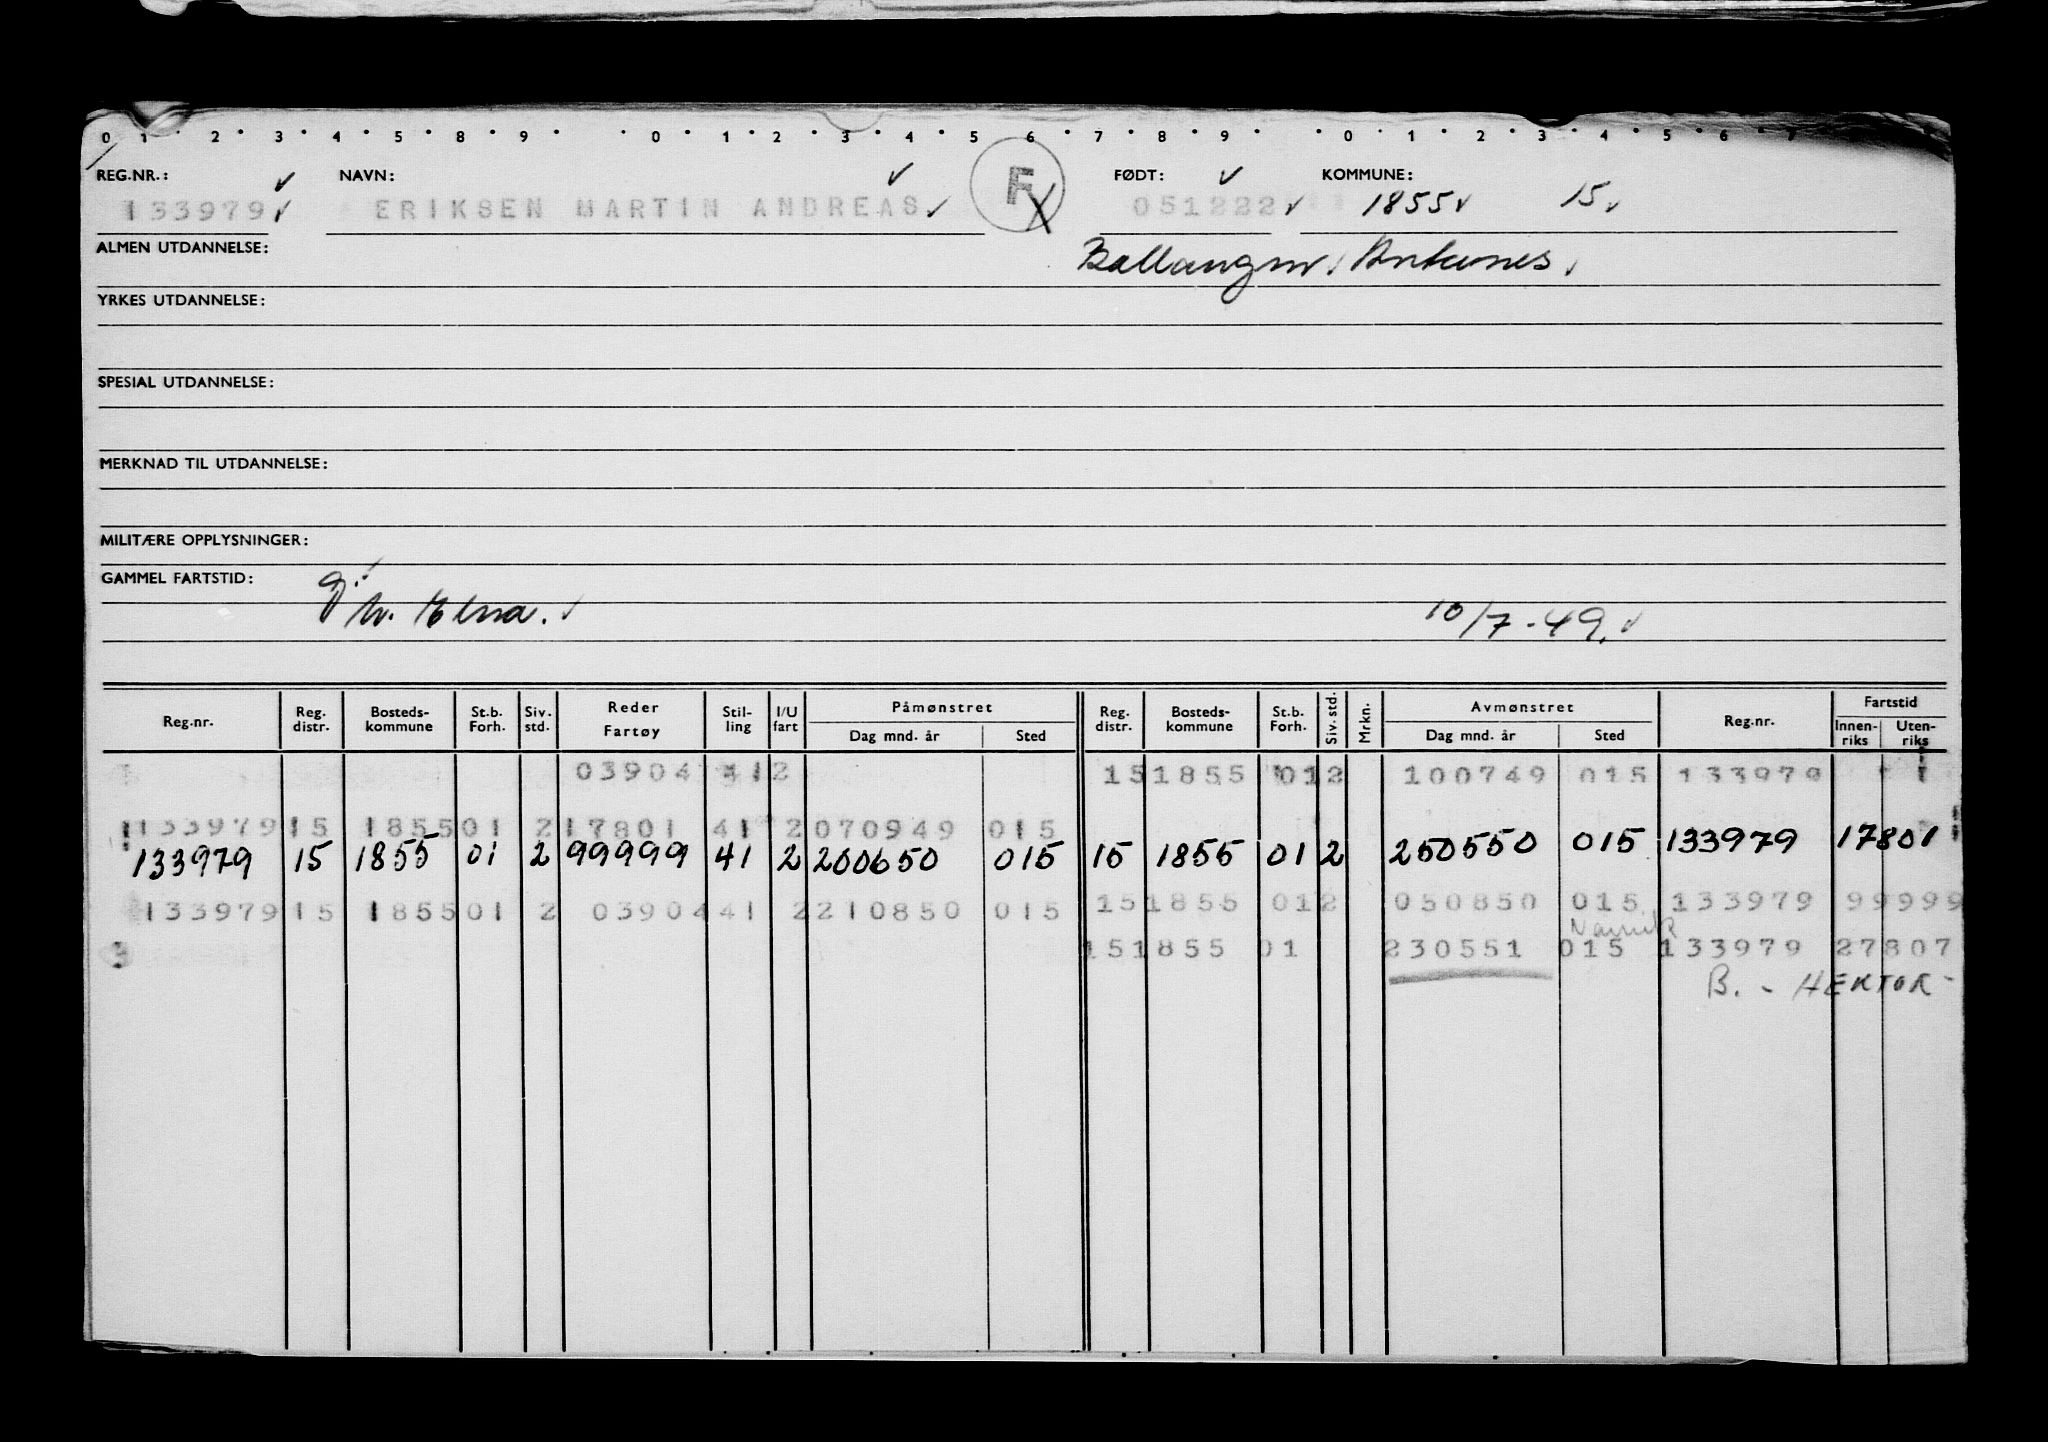 0 1 2 3 4 5 8 9 0 1 2 3 4 5 6 7 8 9 0 1 2 3 4 5 6 7
REG.NR.: NAVN: FØDT: KOMMUNE:
133979 ERIKSEN MARTIN ANDREAS F 051222 1855 15
ALMEN UTDANNELSE:
YRKES UTDANNELSE:
SPESIAL UTDANNELSE:
MERKNAD TIL UTDANNELSE:
MILITÆRE OPPLYSNINGER:
GAMMEL FARTSTID:
10/7-49.
Reg.nr. Reg. distr. Bosteds-kommune St.b. Forh. Siv. std. Reder Fartøy Stil-ling I/U fart Påmønstret Dag mnd. år Sted Reg. distr. Bosteds-kommune St.b. Forh. Siv. std. Mrkn. Avmønstret Dag mnd. år Sted Reg.nr. Fartstid Innen-riks Uten-riks
03904 412 15 1855 01 2 100749 015 133979
133979 15 1855 01 2 17801 41 2 070949 015
133979 15 1855 01 2 99999 41 2 200650 015 15 1855 01 2 250550 015 133979 17801
133979 15 1855 01 2 03904 41 2 210850 015 15 1855 01 2 050850 015 133979 99999
Narvik
3 15 1855 01 230551 015 133979 27807
B. - HEKTOR -